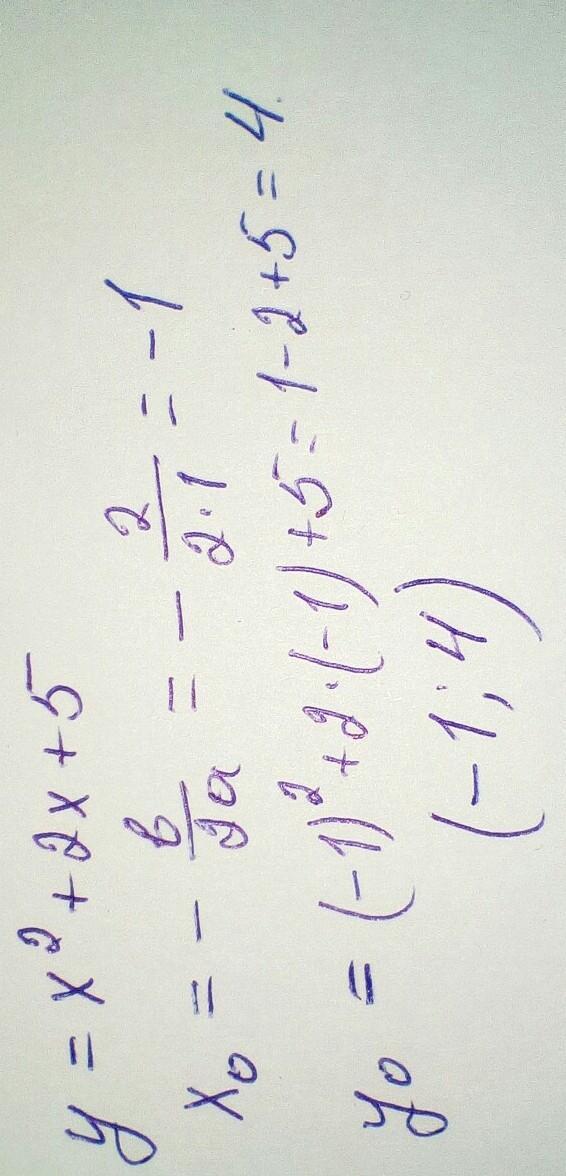 y = x² + 2x + 5
x₀ = - в/2a = - 2/2·1 = -1
y₀ = (-1)² + 2·(-1) + 5 = 1 - 2 + 5 = 4.
(-1; 4)